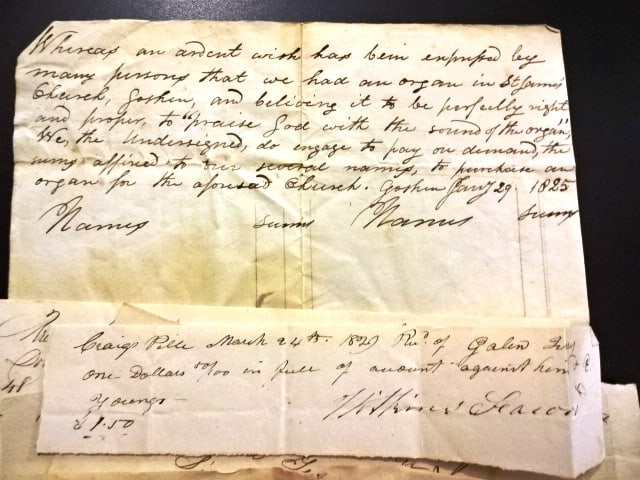 Whereas an ardent wish has been expressed by
many persons that we had an organ in St James'
Church, Goshen, and believing it to be perfectly right
and proper, to "praise God with the sound of the organ,"
We, the Undersigned, do engage to pay on demand, the
sums affixed to our several names, to purchase an
organ for the aforesaid Church. Goshen Jany 29 1825
Names sums Names sums
Craigs Ville March 24th 1829 Rd of Galen
one Dollars 50/00 in full of account against him
Yours
$1.50